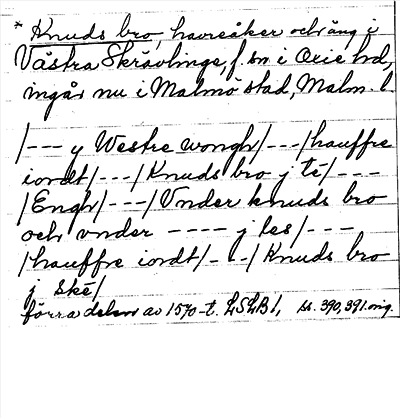 * Knuds bro, havreåker och äng i
Västra Skrävlinge, f. sn i Oxie hd,
ingår nu i Malmö stad, Malm. l.
/--- y Westre wongh/---/hauffre
iordt/---/Knuds bro j té/---
/Engh/---/Vnder knuds bro
och vnder ---- j les/---
/hauffre iordt/---/Knuds bro
j ské/
förra delen av 1570-t. LSLB 1, ss. 390, 391. orig.